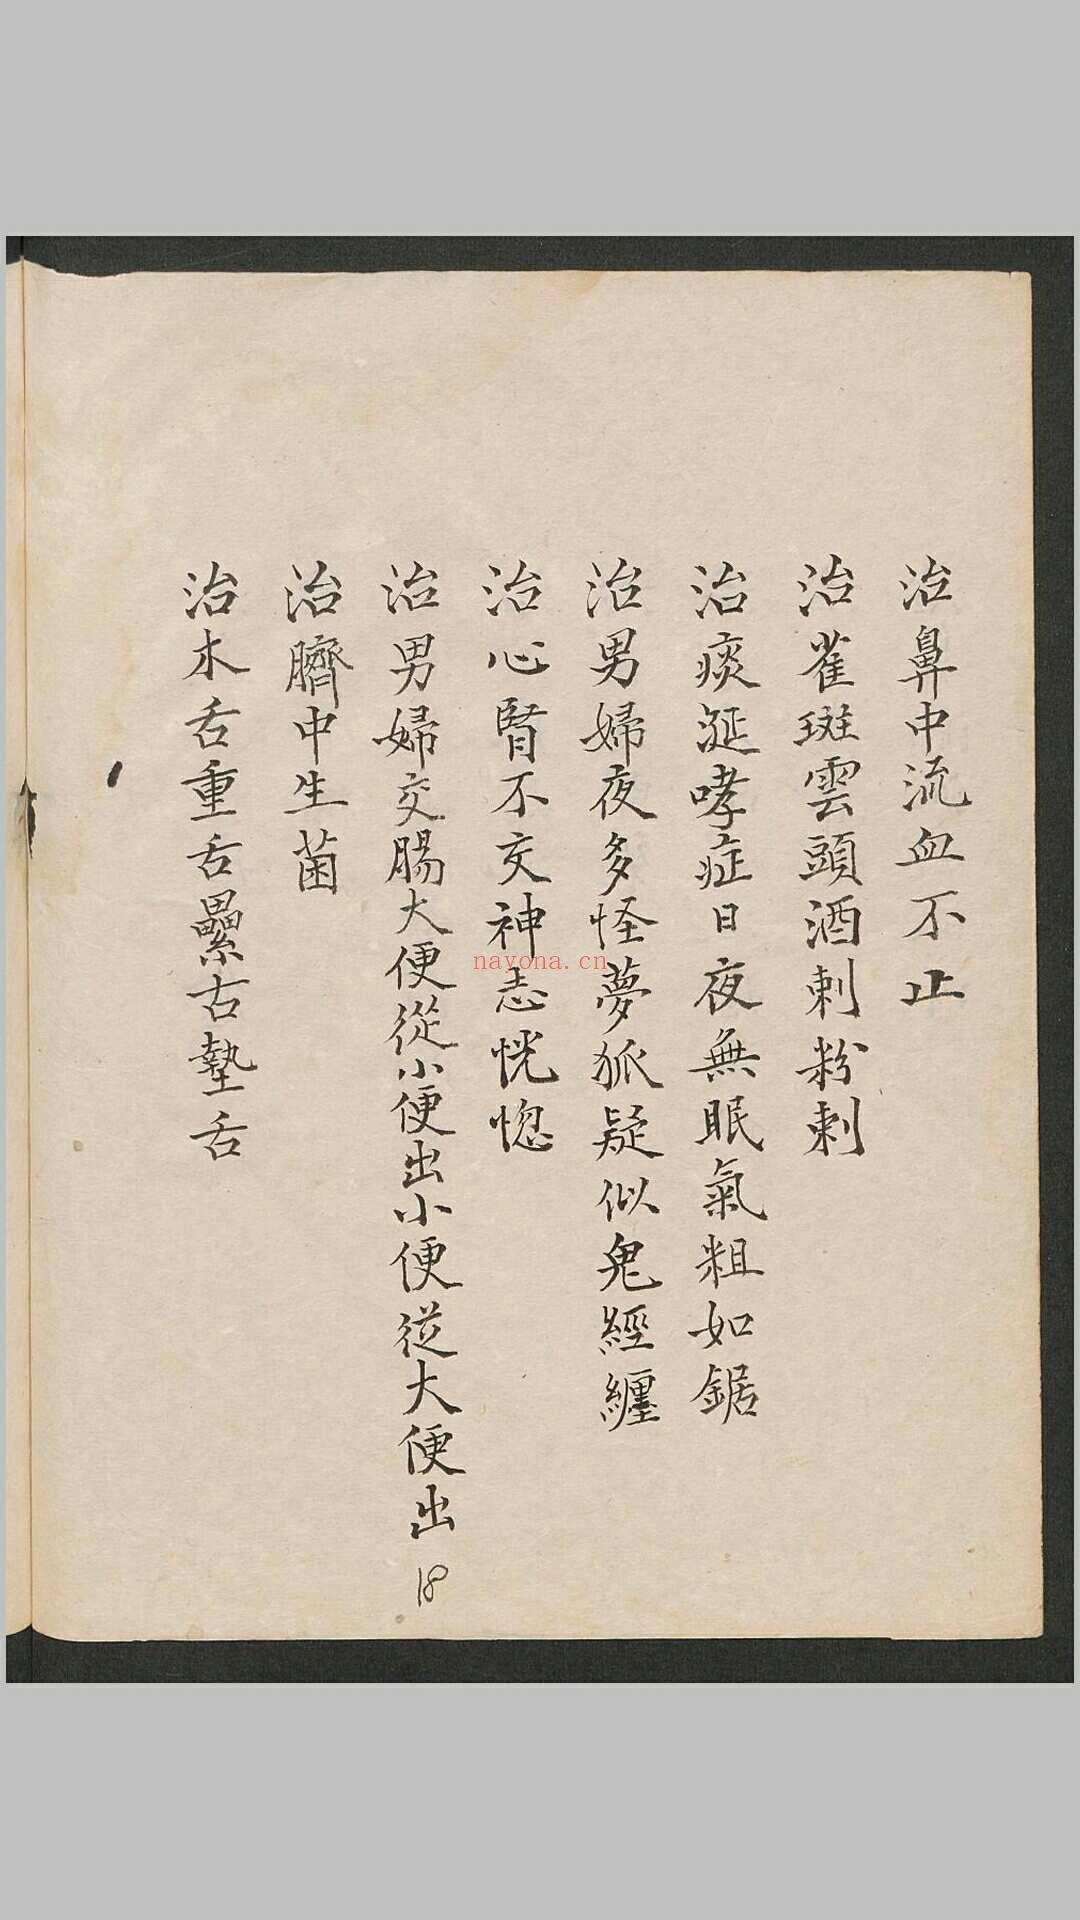 治鼻中流血不止
治雀斑雲頭酒刺粉刺
治痰涎哮症日夜無眠氣粗如鋸
治男婦夜多怪夢狐疑似鬼經纏
治心腎不交神志恍惚
治男婦交腸大便從小便出小便從大便出
18
治臍中生菌
治木舌重舌壘古墊舌
nayona.cn